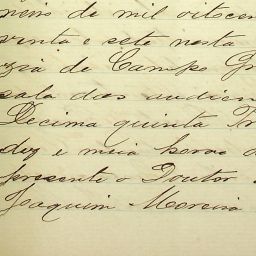 neiro de mil oitocen
vinta e sete nesta
zia de Campo Gr
sala das audien
Decima quinta Tr
dez e meia horas d
presente o Doutor
Joaquim Moreira